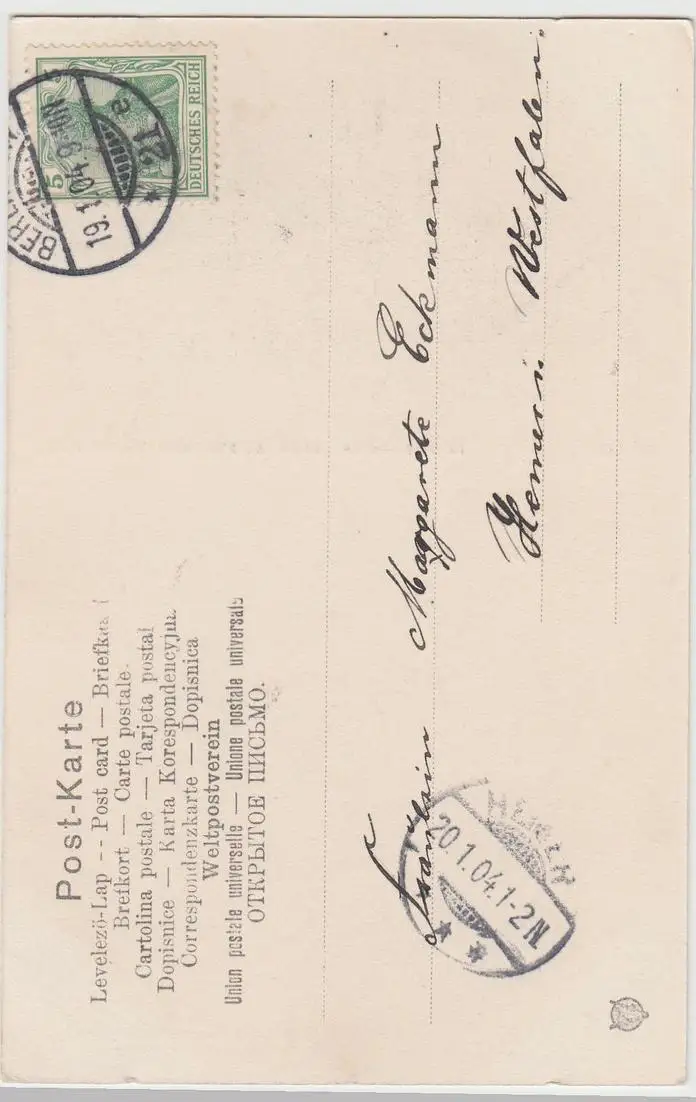 Post-Karte
Levelezö-Lap -- Post card — Briefka
Brefkort — Carte postale.
Cartolina postale — Tarjeta postal
Dopisnice — Karta Korespondencyjna.
Correspondenzkarte — Dopisnica
Weltpostverein
Union postale universelle — Unione postale universale
ОТКРЫТОЕ ПИСЬМО.
5
DEUTSCHES REICH
BERLIN
19.1.04.8-9N
21
a
Fräulein Margarete Eckmann
Hemer i. Westfalen.
HEMER
20.1.04.1-2N